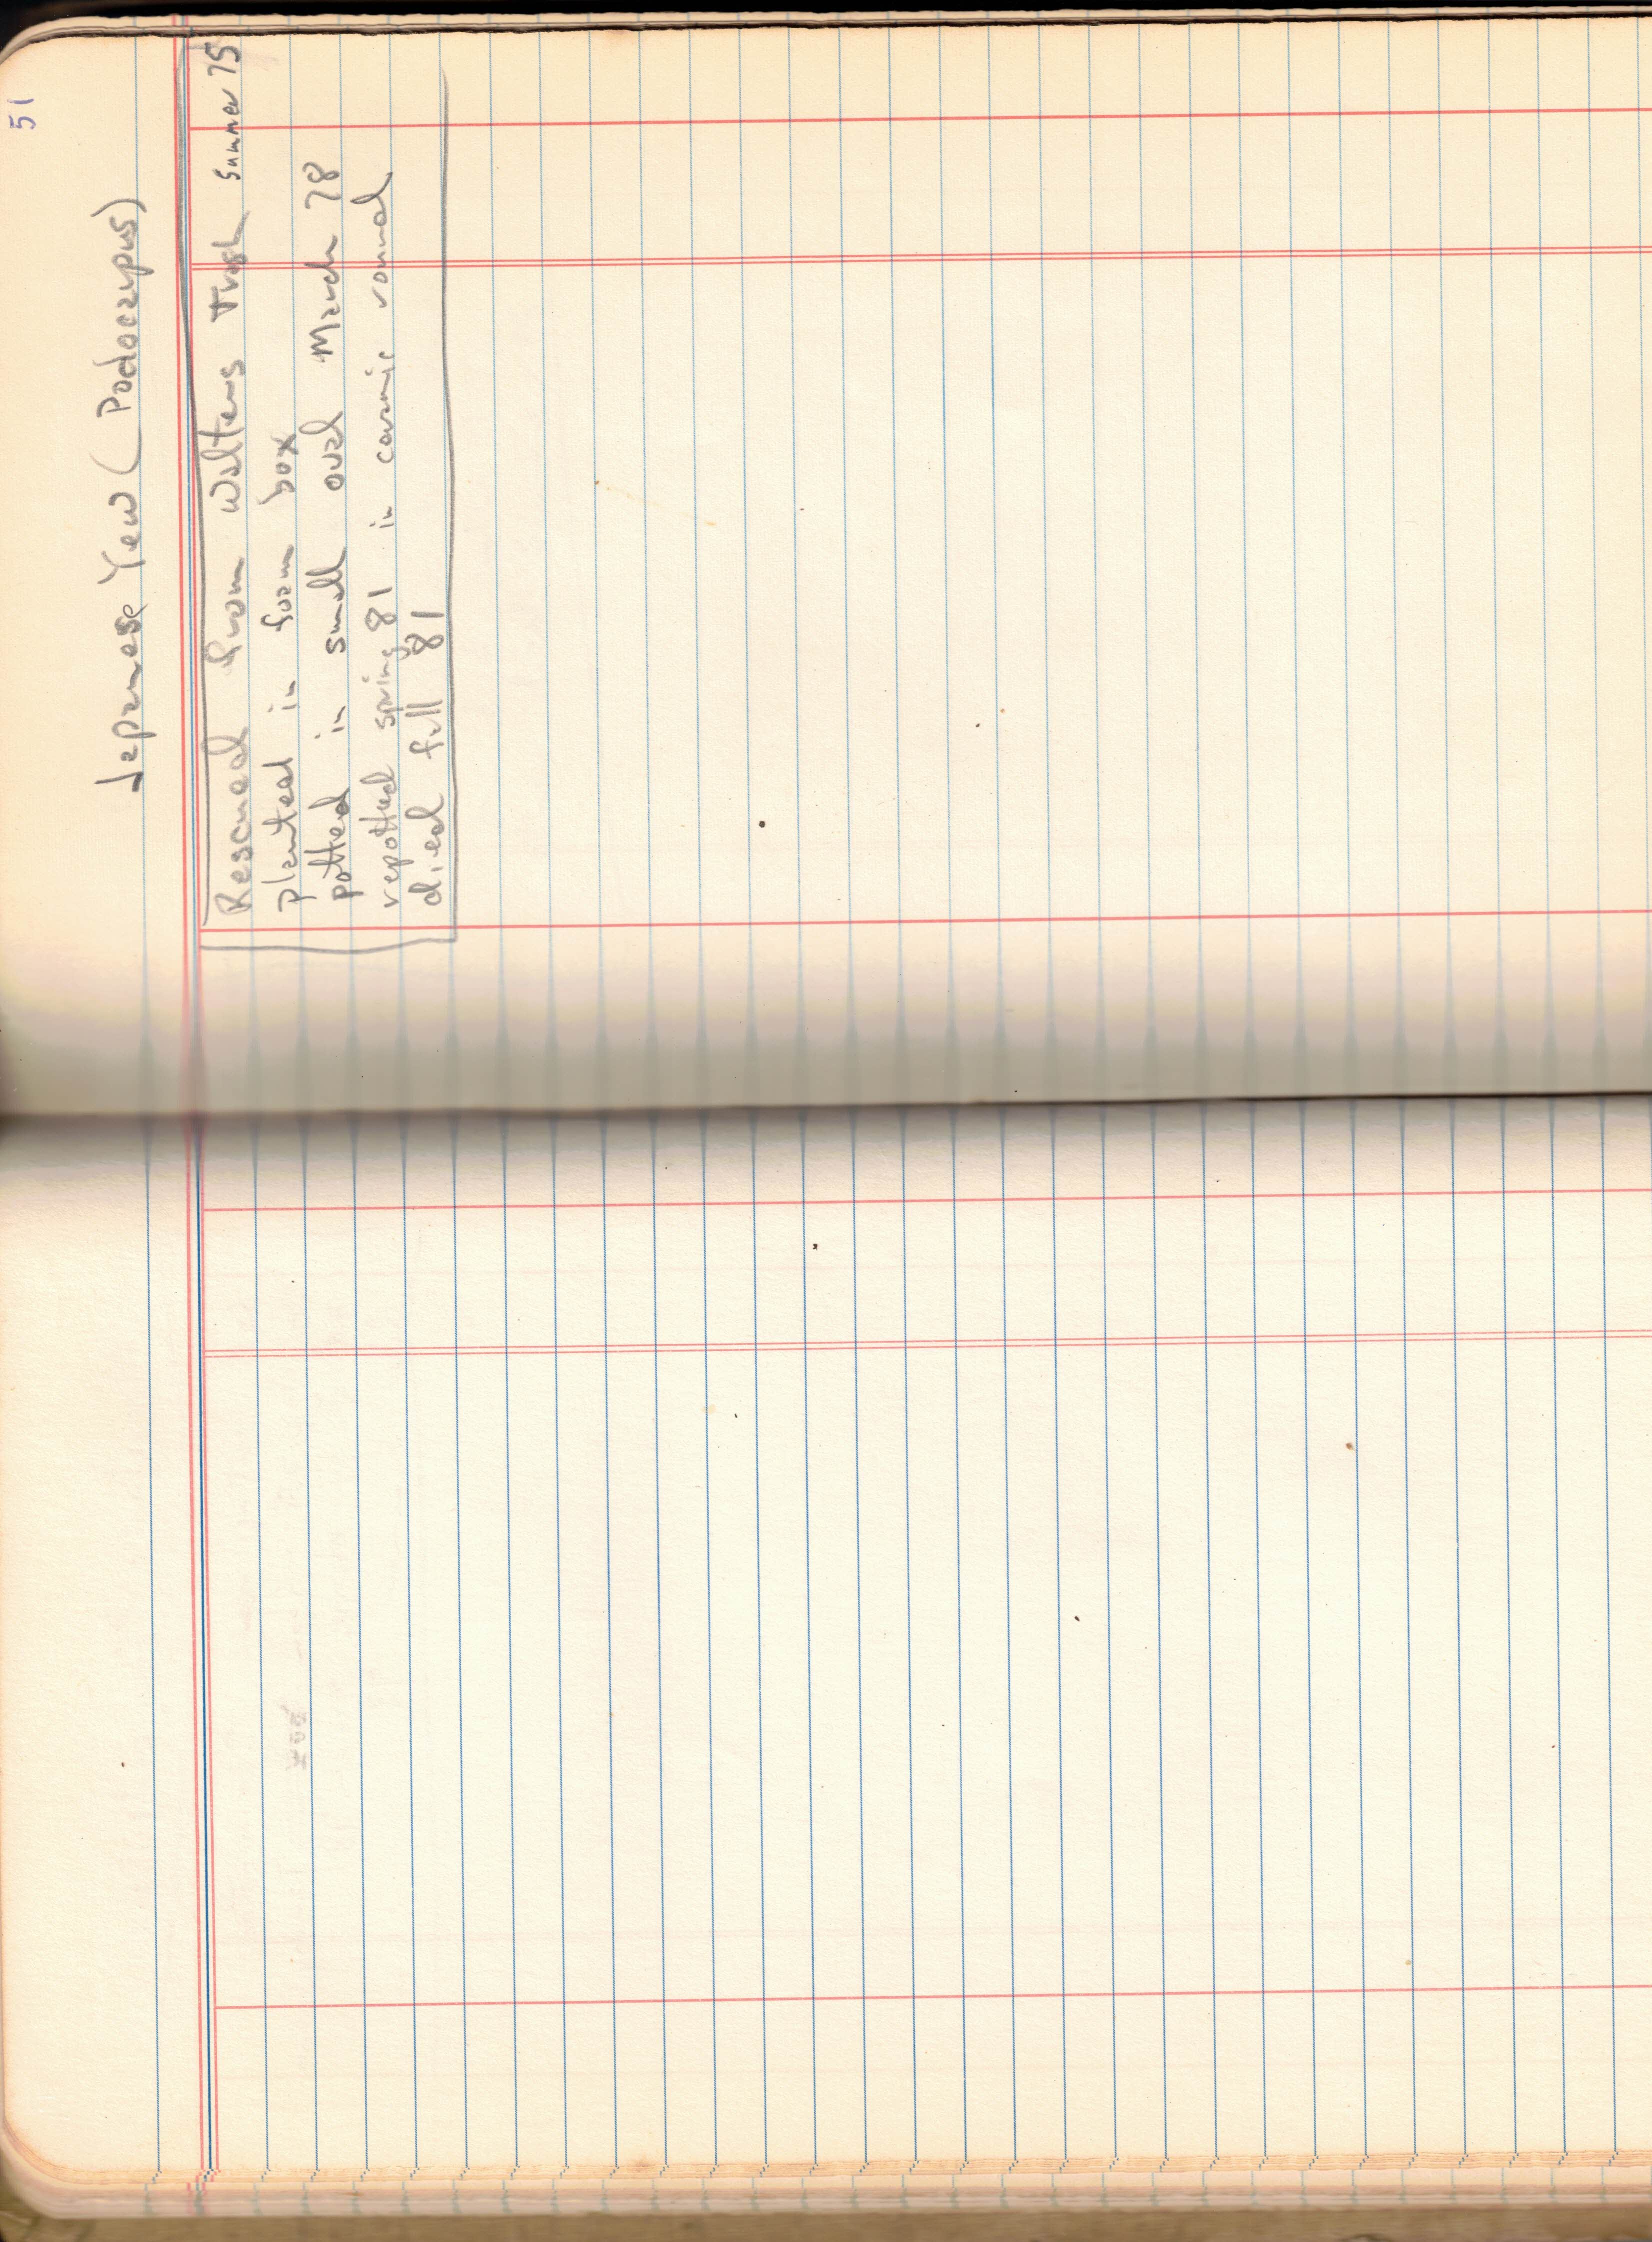 51
Japanese Yew (Podocarpus)
Rescued from Walters Trash Summer 75
planted in foam box
potted in small oval March 78
repotted spring 81 in ceramic round
died fall 81